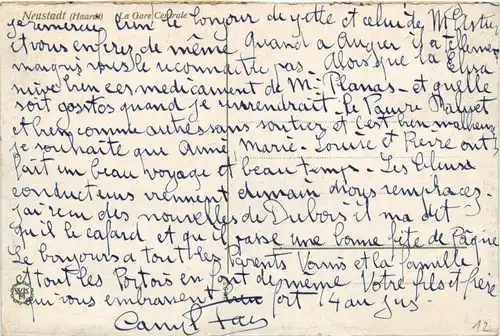 Neustadt (Haardt) La Gare Centrale
je remercie bien le bonjour de yette et celui de Mr
et vous en fires de même quand a Auger il a tellemen
maigris vous le reconnaitre pas. Alors que la Elisa
suive bien ces medicament de Mr Planas et quelle
soit quand je reviendrait. Le Pauvre Manuet
et bien comme autres sans soutiez et c'est bien malheur
je souhaite que Anne Marie-Louise et Pierre ont
fait un beau voyage et beau temp. Les
conducteurs viennent demain nous remplaces.
j'ai reçu des nouvelles de Dubois il ma dit
qu'il le cafard et qu'il passe une bonne fête de Pâque
Le bonjours a tout les Parents Voisis et la famille
et tout les en font de meme Votre fils et frère
qui vous embrassent fort 4 au jus.
12